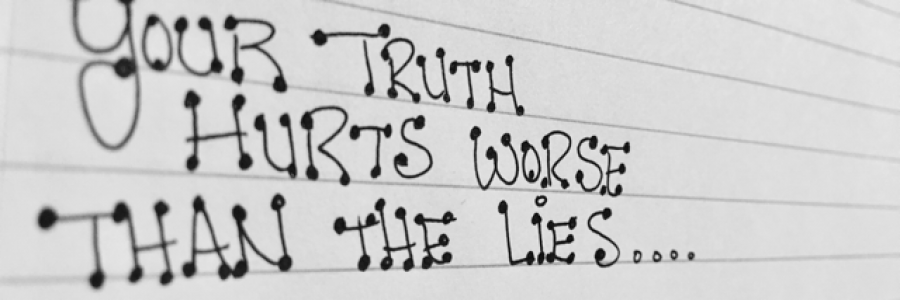 YOUR TRUTH
HURTS WORSE
THAN THE LiES....